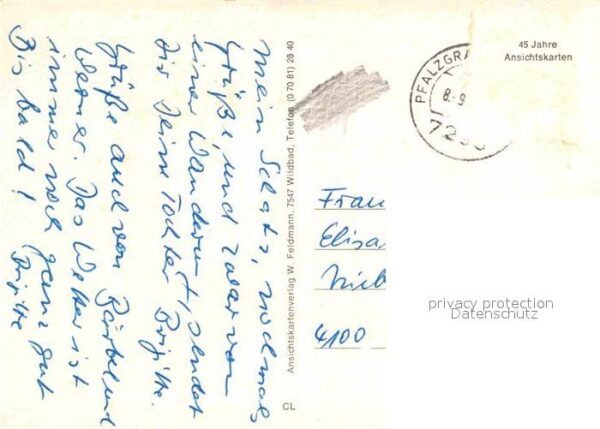 Mein Schatz, nochmals
Grüße, und zwar von
einer Wanderung, sendet
Dir Deine Tochter Brigitte.
Grüße auch von Bärbel und
Werner. Das Wetter ist
immer noch ganz gut
Bis bald! Brigitte
Ansichtskartenverlag W. Feldmann, 7547 Wildbad, Telefon (0 70 81) 28 40
CL
45 Jahre
Ansichtskarten
PFALZGRA
8.-9
72
Frau
Elisa
4100
privacy protection
Datenschutz